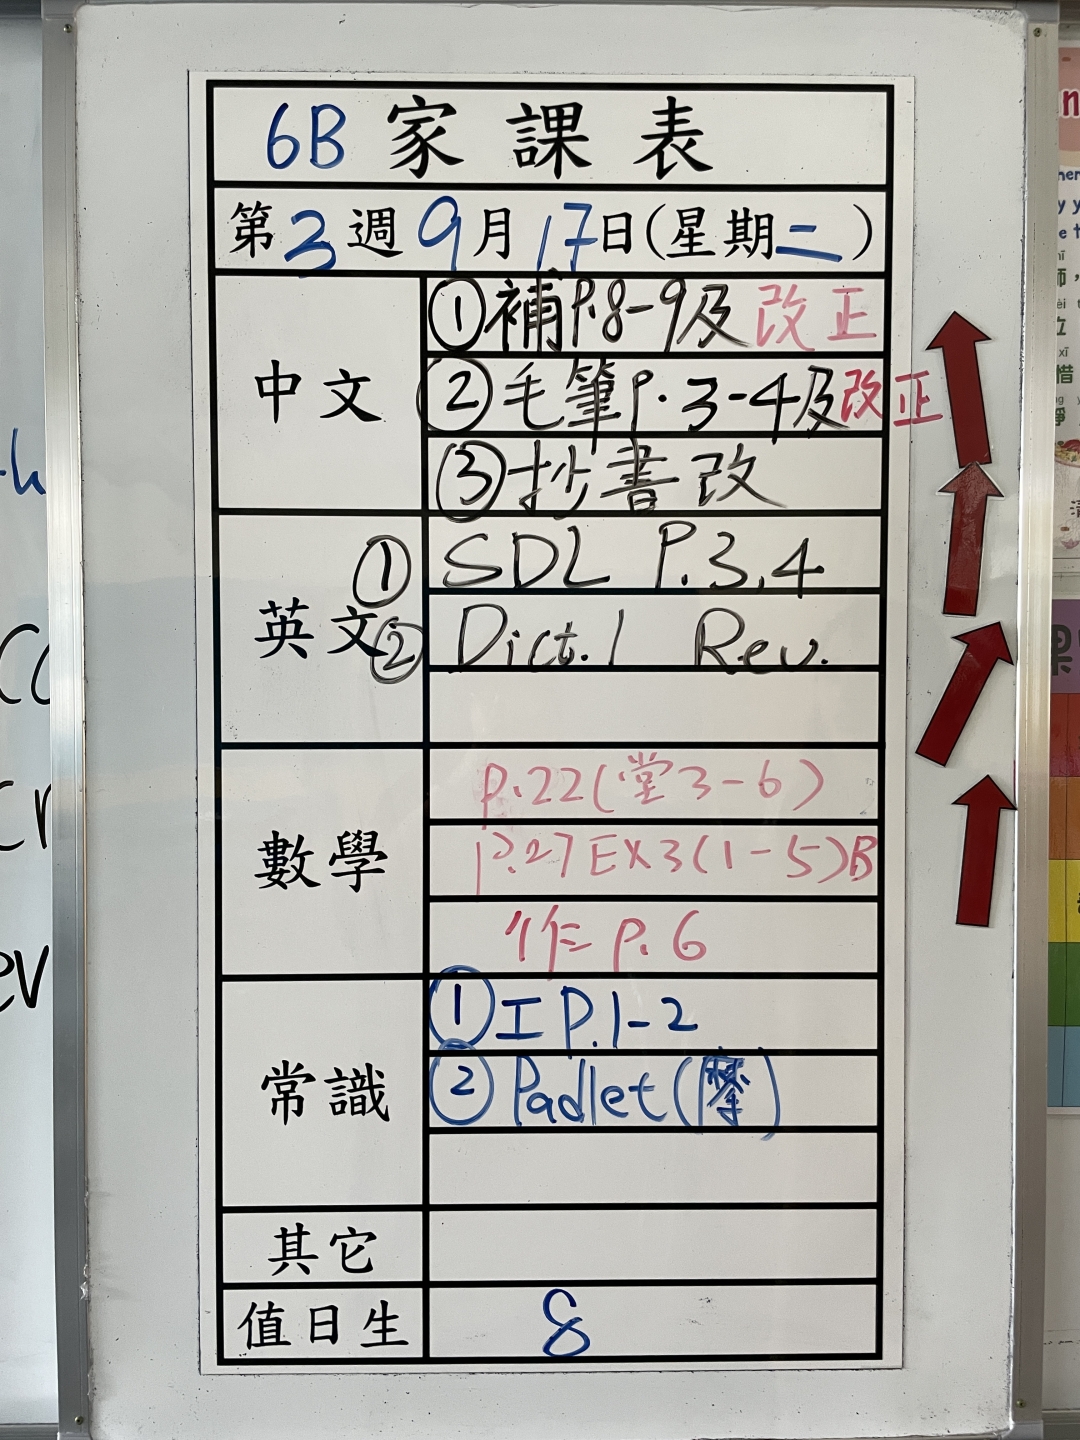 6B 家課表
第3週9月17日(星期二)
中文
①補P.8-9及改正
②毛筆P.3-4及改正
③抄書改
英文
① SDL P.3,4
② Dict.1 Rev.
數學
P.22(堂3-6)
P.27 EX3(1-5)B
作 P.6
常識
①工P.1-2
②Padlet(摩)
其它
值日生
8